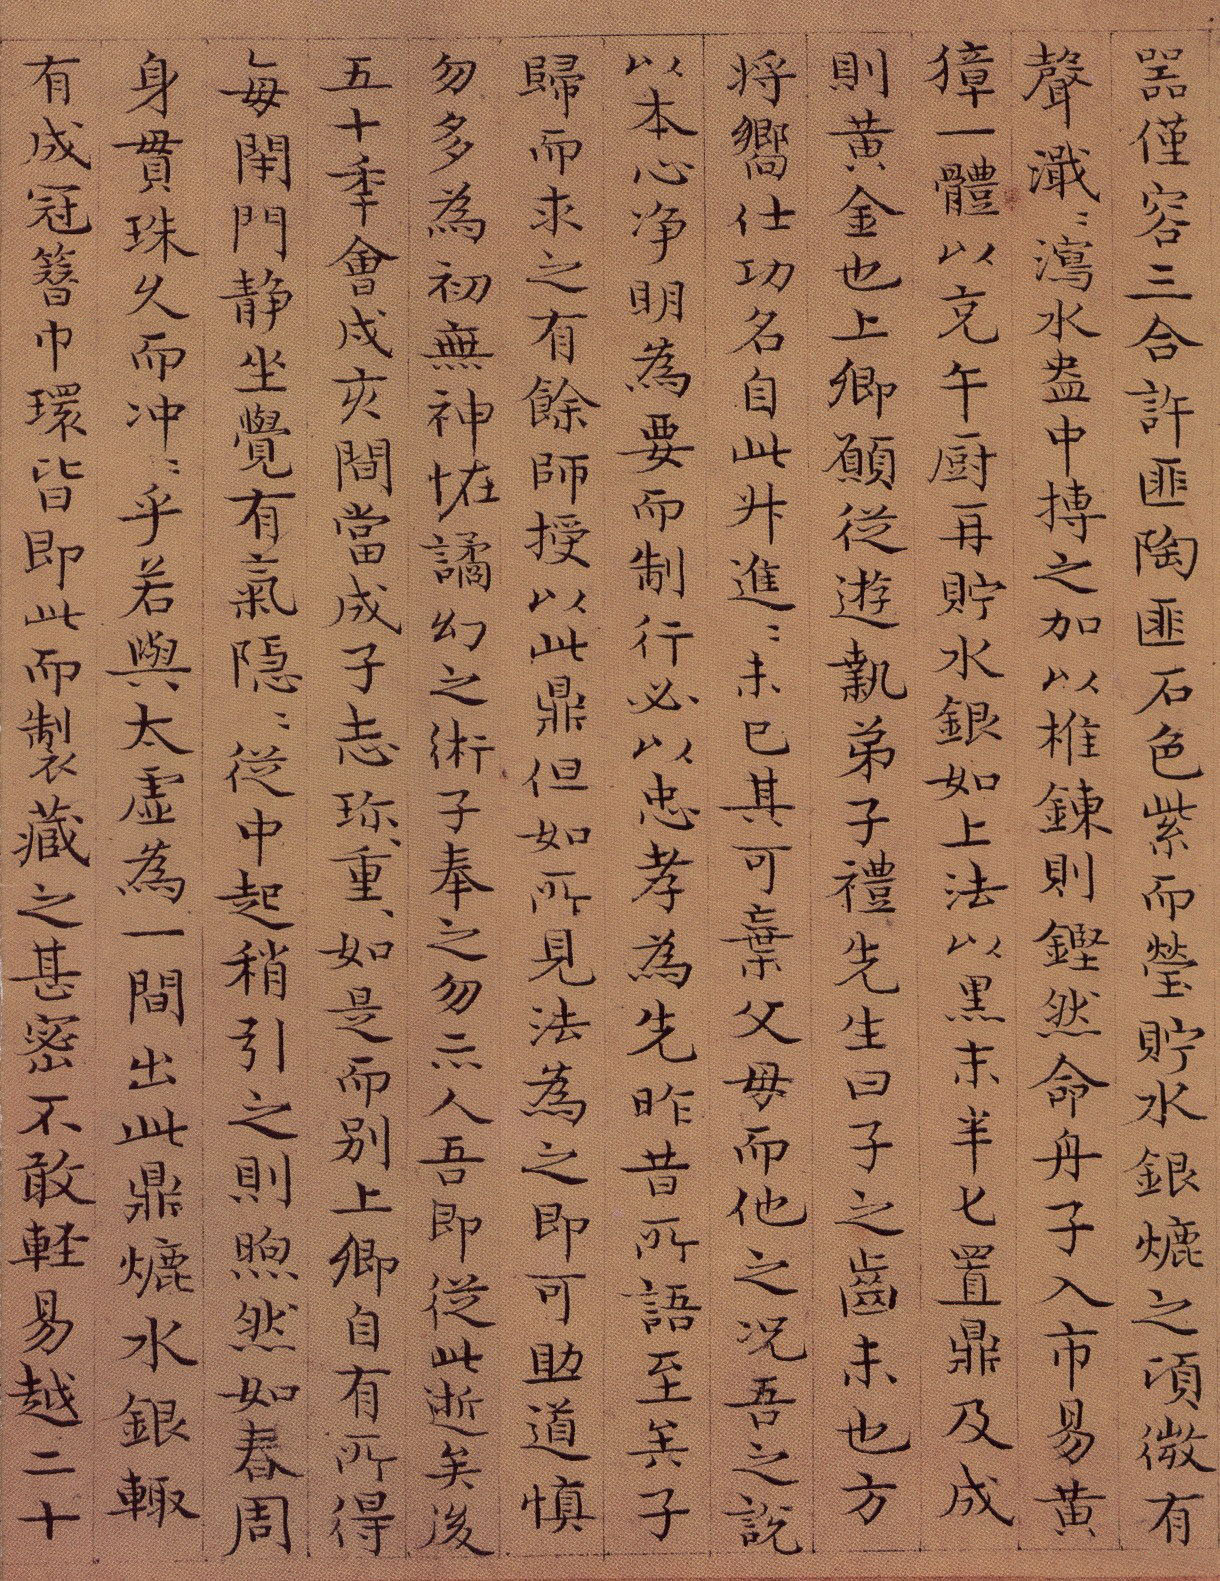 噐僅容三合許匪陶匪石色紫而瑩貯水銀爊之頃微有
聲瀐〻瀉水盎中摶之加以椎鍊則鏗然命舟子入市易黄
獐一體以充午厨再貯水銀如上法以黒末半匕置鼎及成
則黄金也上卿願從遊執弟子禮先生曰子之齒未也方
将嚮仕功名自此升進〻未已其可棄父母而他之况吾之説
以本心净明為要而制行必以忠孝為先昨昔所語至矣子
歸而求之有餘師授以此鼎但如所見法為之即可助道慎
勿多為初無神恠譎幻之術子奉之勿示人吾即從此逝矣後
五十秊會戌亥間當成子志珎〻重〻如是而别上卿自有所得
每閉門静坐覺有氣隠〻從中起稍引之則煦然如春周
身貫珠久而冲〻乎若與太虚為一間出此鼎爊水銀輙
有成冠簪巾環皆即此而製藏之甚密不敢輕易越二十